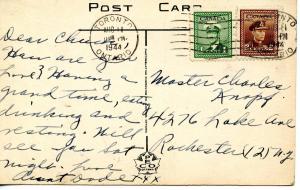 POST CARD
TORONTO
1944
ONTARIO
CANADA
CANADA
Dear Chas
How are you
Love? Having a
grand time, eating
drinking and
resting. Will
see you Sat
night. Love
Aunt Dode xxx
Master Charles
4276 Lake Ave
Rochester 12 N.Y.